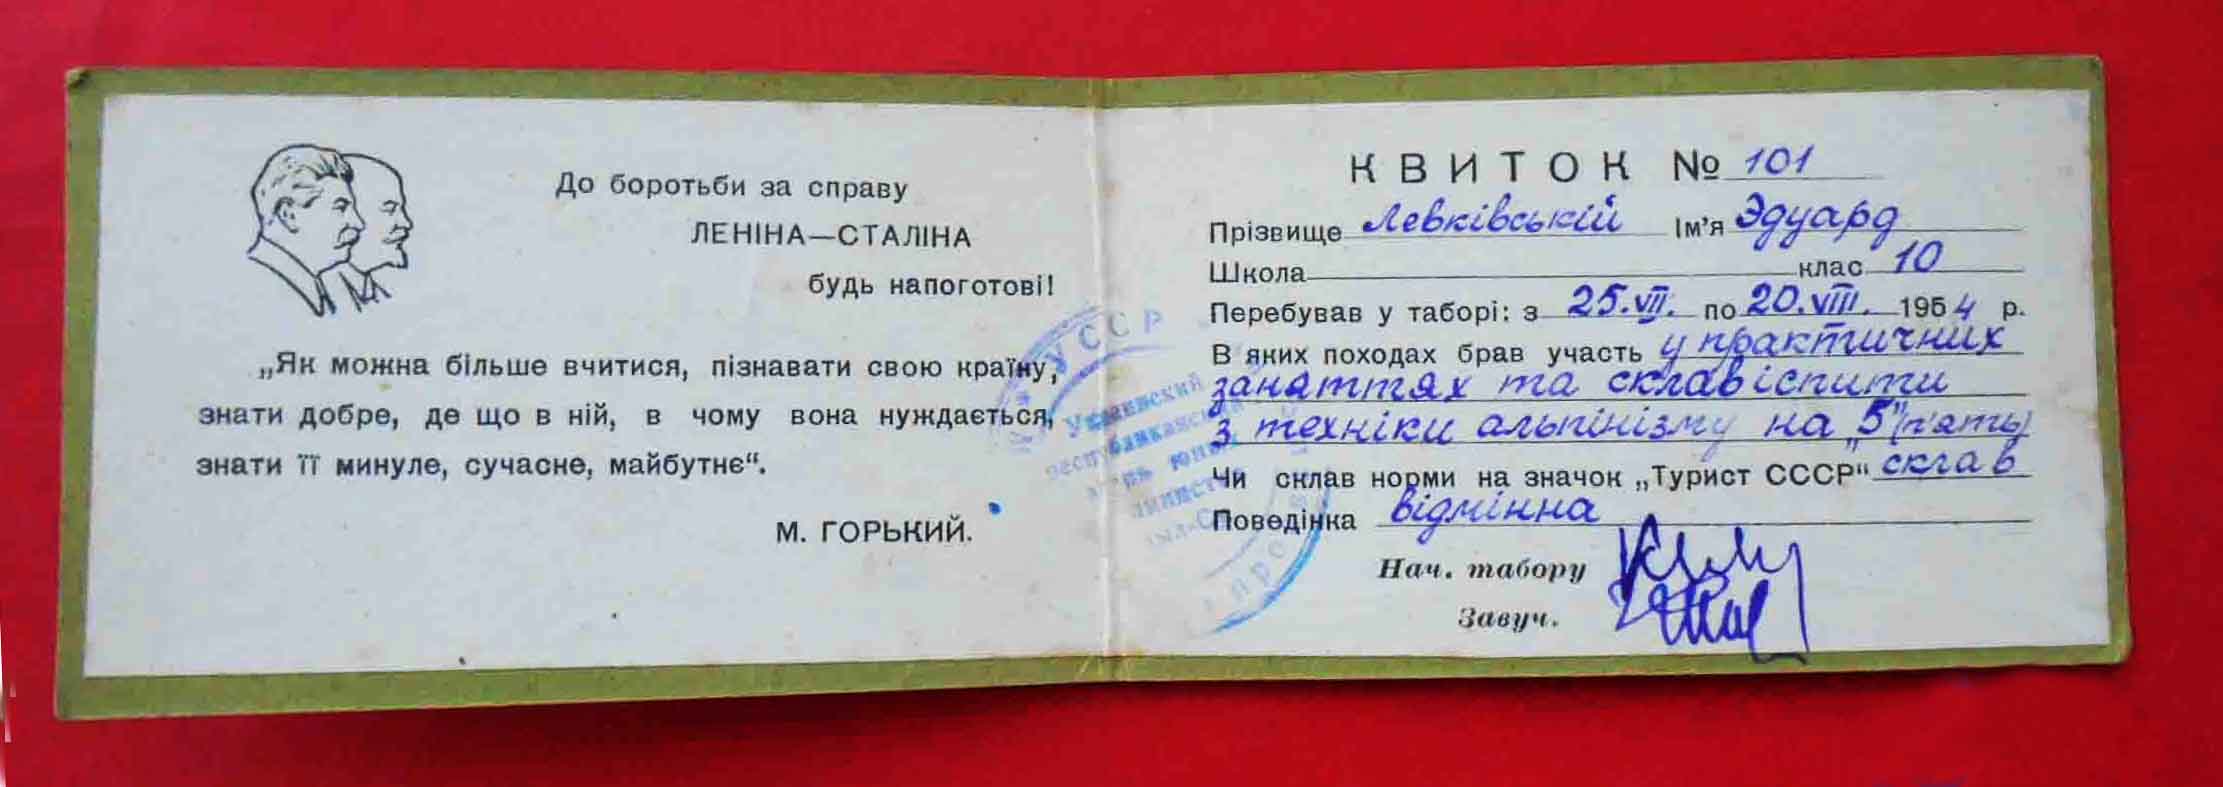 До боротьби за справу
ЛЕНІНА—СТАЛІНА
будь напоготові!
„Як можна більше вчитися, пізнавати свою країну,
знати добре, де що в ній, в чому вона нуждається,
знати її минуле, сучасне, майбутнє“.
М. ГОРЬКИЙ.
КВИТОК № 101
Прізвище Левківській Ім’я Эдуард
Школа клас 10
Перебував у таборі: з 25.VII. по 20.VIII. 1954 р.
В яких походах брав участь у практичних
заняттях та склав іспити
з техніки альпінізму на „5" (п'ять)
Чи склав норми на значок „Турист СССР“ склав
Поведінка відмінна
Нач. табору
Завуч.
УССР
Украинский
республиканский